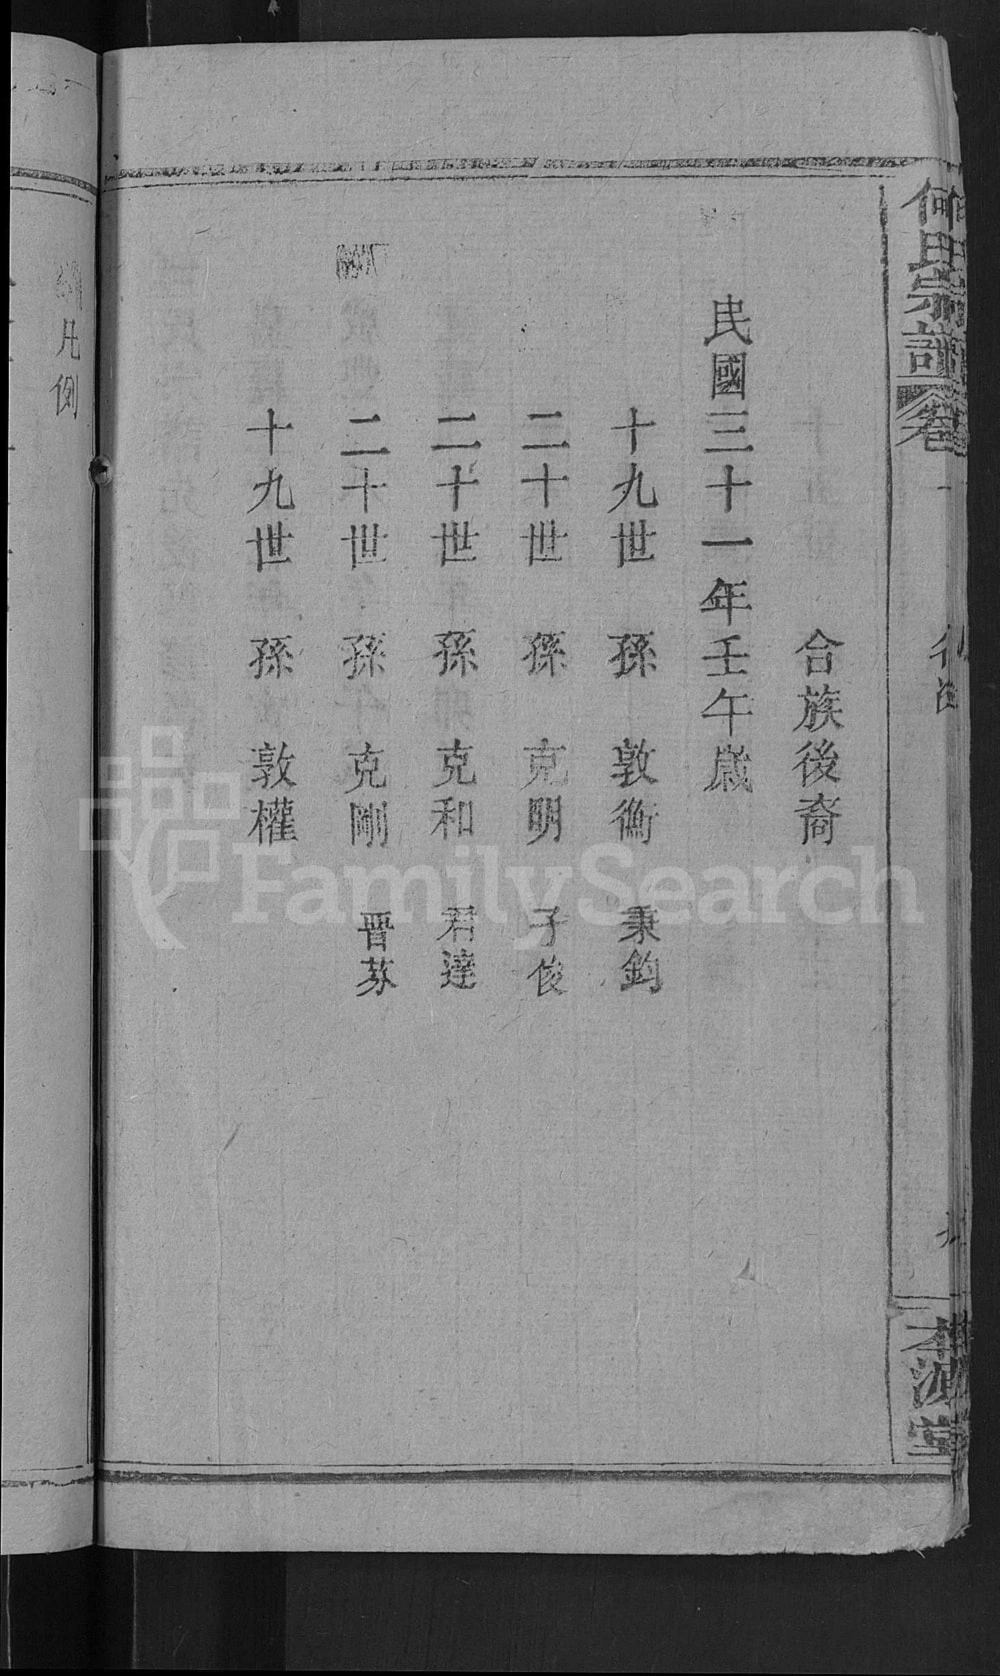 何氏宗譜
卷一
本源堂
合族後裔
民國三十一年壬午歲
十九世 孫 敦衡 秉鈞
二十世 孫 克明 子俊
二十世 孫 克和 君達
二十世 孫 克剛 晋荪
十九世 孫 敦權
凡例
FamilySearch